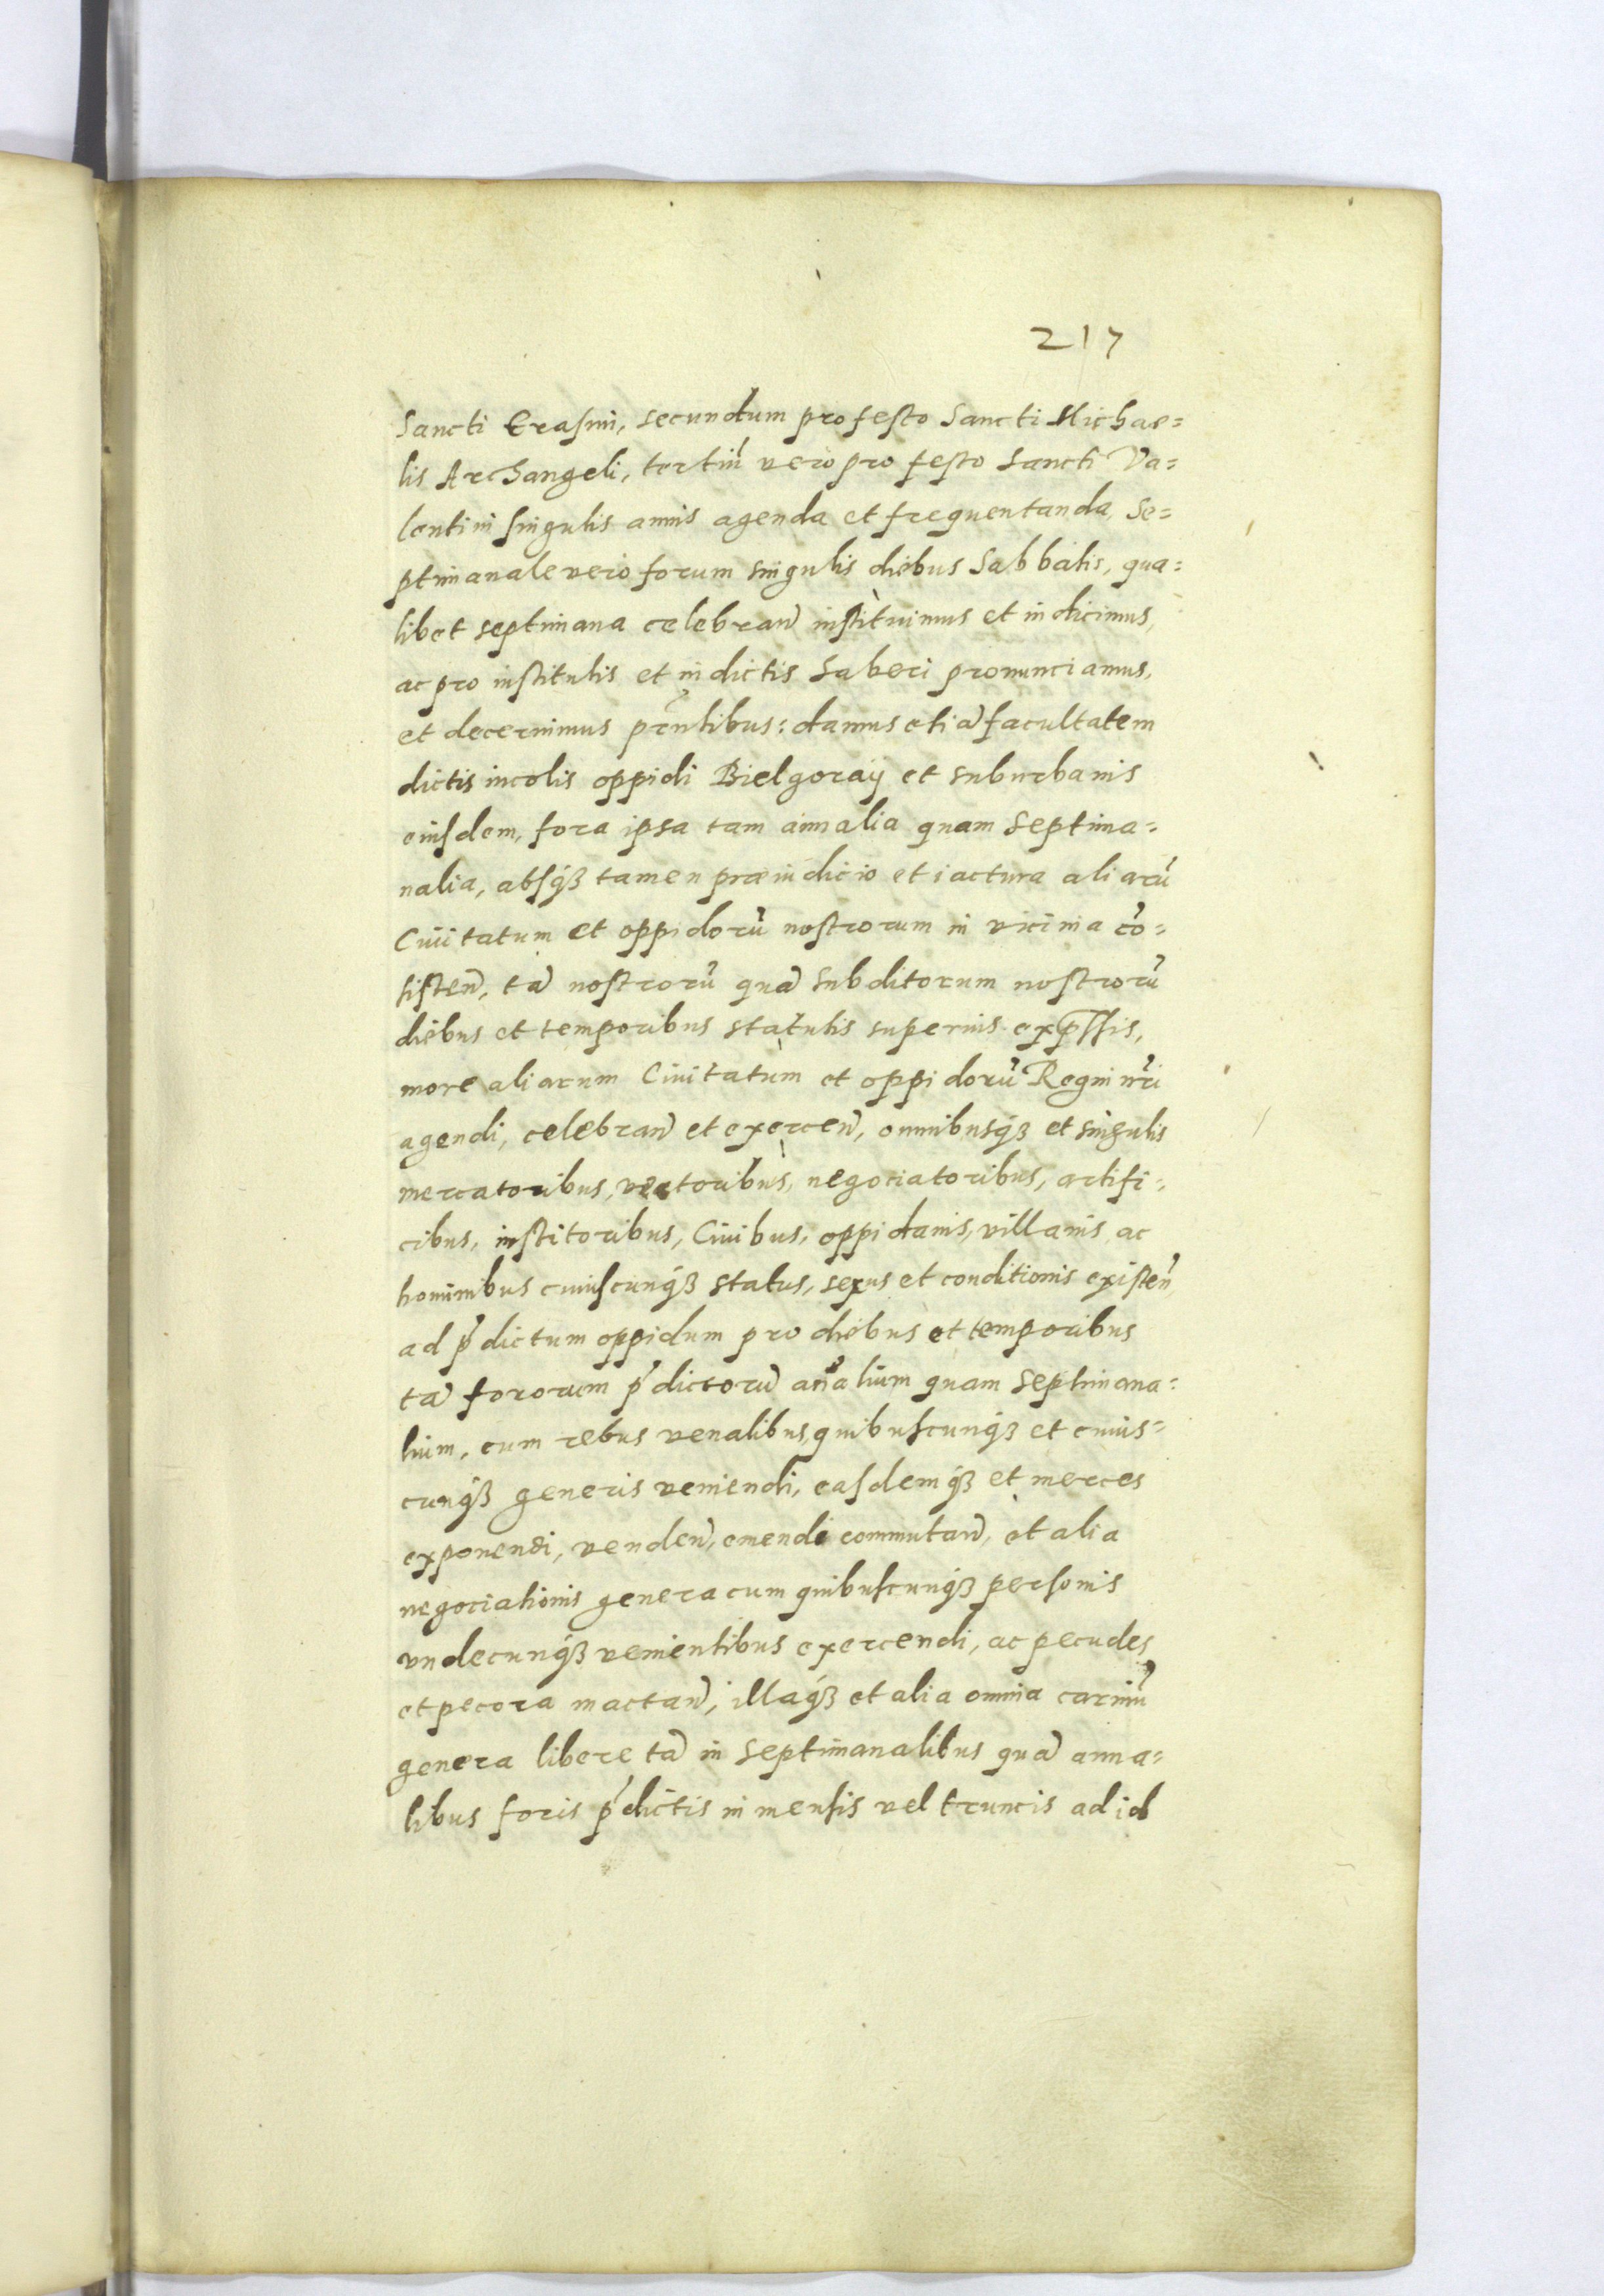 217
Sancti Erasmi, secundum pro festo Sancti Michae=
lis Archangeli, tertiũ vero pro festo Sancti Va=
lentini singulis annis agenda et frequentanda, Se=
ptimanale vero forum singulis diebus Sabbatis, qua=
libet septimana celebrañ instituimus et indicimus,
ac pro institutis et indictis haberi pronunciamus,
et decernimus pñtibus: damus etiã facultatem
dictis incolis oppidi Bielgoraij et suburbanis
eiusdem, fora ipsa tam annalia quam Septima=
nalia, absq₃ tamen præiudicio et iactura aliarũ
Ciuitatum et oppidorũ nostrorum in vicinia cõ=
sisteñ, tã nostrorũ quã subditorum nostrorũ
diebus et temporibus statutis superius exp̃ssis,
more aliarum Ciuitatum et oppidorũ Regni nr̃i
agendi, celebrañ et exerceñ, omnibusq₃ et singulis
mercatoribus, vectoribus, negociatoribus, artifi=
cibus, institoribus, Ciuibus, oppidanis, villanis ac
hominibus cuiuscunq₃ status, sexus et conditionis existeñ,
ad p̃dictum oppidum pro diebus et temporibus
tã fororum p̃dictorũ añalium quam Septimana=
lium, cum rebus venalibus, quibuscunq₃ et cuius=
cunq₃ generis veniendi, easdemq₃ et merces
exponendi, vendeñ, emendi commutañ, et alia
negociationis genera cum quibuscunq₃ personis
vndecunq₃ venientibus exercendi, ac pecudes
et pecora mactañ, illaq₃ et alia omnia carniũ
genera libere tã in Septimanalibus quã anna=
libus foris p̃dictis in mensis vel truncis ad id